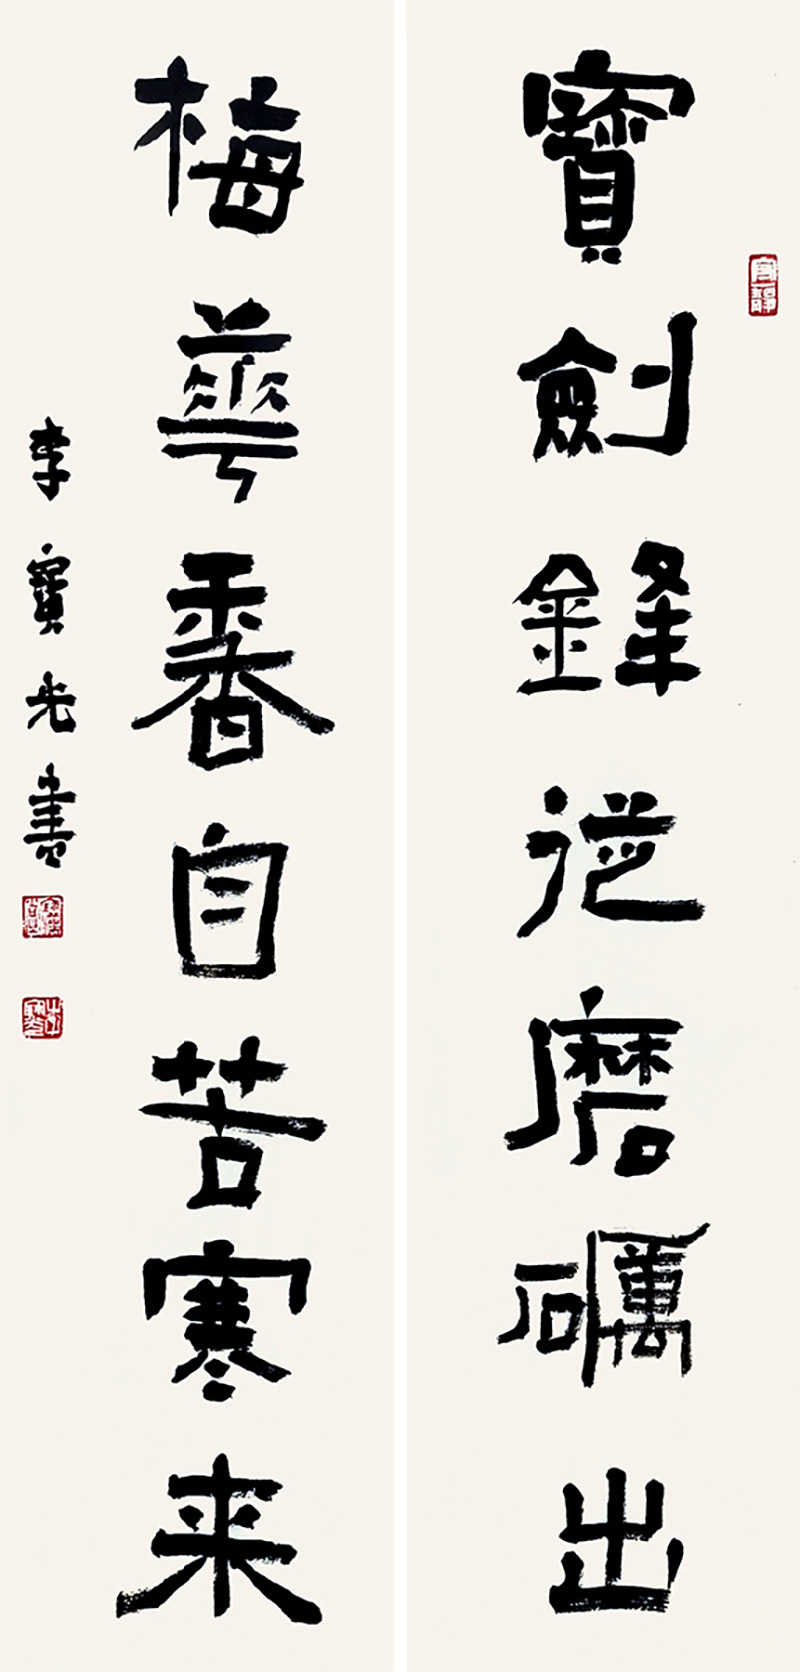 寶劍鋒從磨礪出
梅華香自苦寒来
李寶光書